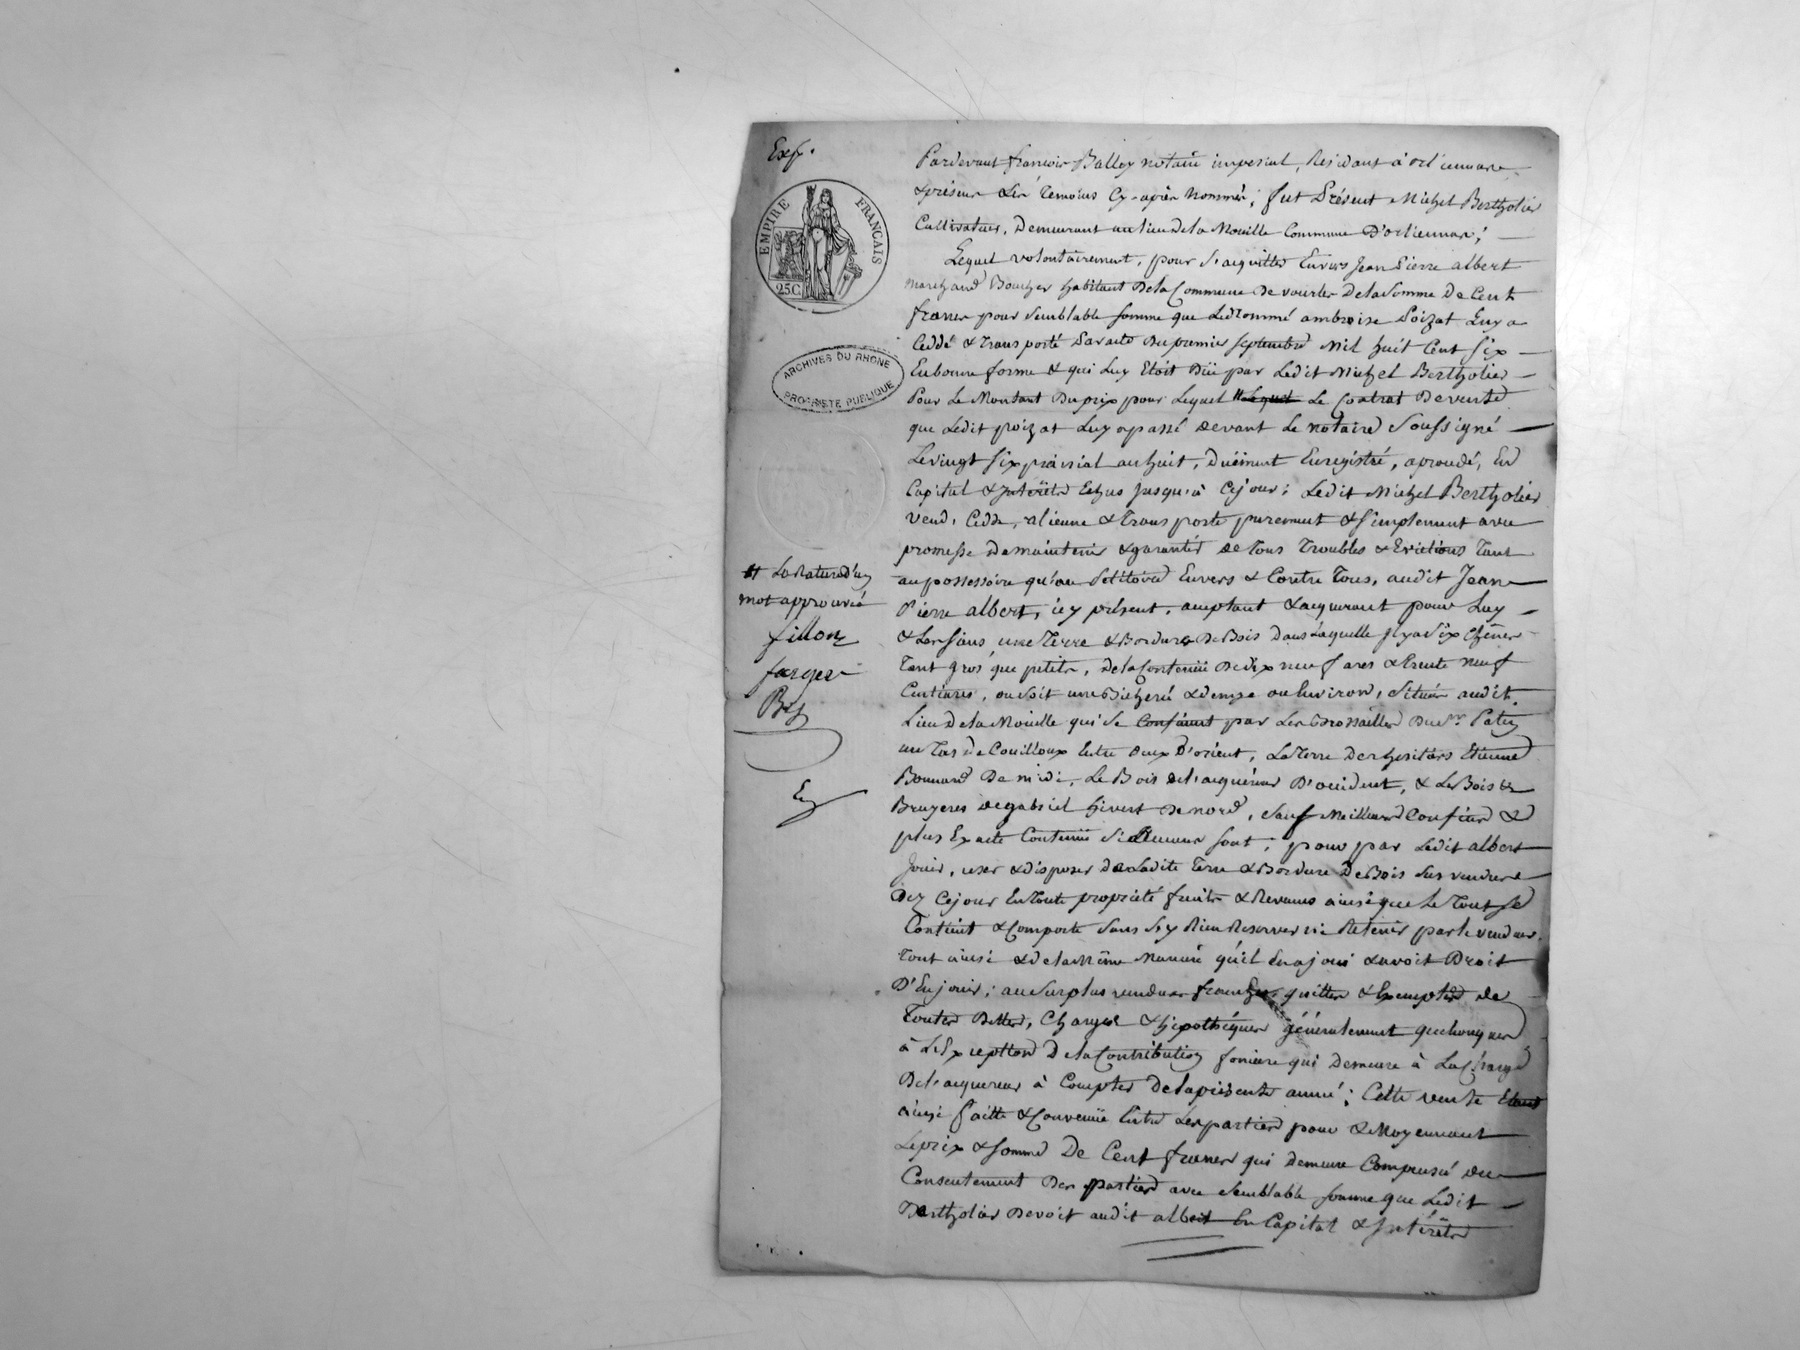 Exp.
EMPIRE FRANÇAIS
25C.
ARCHIVES DU RHONE
PROPRIETE PUBLIQUE
Pardevant françois Balley notaire imperial, Residant à orliennas
& présens Les Temoins Cy-après Nommés; fut Présent Michel Bertholier
Cultivateur, Demeurant au lieu de la Mouille Commune D'orliennas;
Lequel volontairement, pour s'acquitter Envers Jean Pierre albert
marchand Boucher habitant De la Commune de vourles De la Somme De Cent
francs pour Semblable Somme que Ledit nommé ambroise Poizat Luy a
Ceddé & Transporté Par acte Du premier Septembre Mil huit Cent Six
En bonne forme & qui Luy Etoit Dûe par Ledit Michel Bertholier
Pour Le Montant Du prix pour Lequel # Lequel Le Contrat De vente
que Ledit poizat Luy a passé devant Le notaire Soussigné
Le vingt Six prairial an huit, Duëment Enregistré, En
Capital & Intérêts Echus Jusqu'à Ce jour; Ledit Michel Bertholier
vend, Cedde, aliene & Transporte purement & Simplement avec
promesse De maintenir & garantir de Tous Troubles & Evictions Tant
au possessoire qu'au Petitoire Envers & Contre Tous, audit Jean
Pierre albert, icy présent, acceptant & acquerant pour Luy
& Les Siens une Terre & Bordure De Bois Dans Laquelle Il y a Six Chênes
Tant gros que petits, De la Contenue De dix neuf ares & trente neuf
Centiares, ou Soit une Bicherée & demye ou Environ, Située audit
Lieu De la Mouille qui Se Confinent par Les Brossailles Du Sr.
un Tas de Cailloux Entre Deux D'orient, La Terre Des heritiers Etienne
Bonnard De midi, Le Bois de l'acquéreur D'occident, & Les Bois &
Bruyeres de gabriel hivert De nord, Sauf Meilleurs Confins &
plus Exacte Contenue Si aucuns Sont; pour par Ledit albert
Jouir, user & disposer de Ladite Terre & Bordure De Bois Sus vendue
Dez Ce jour En Toute propriété fruits & Revenus ainsi que Le Tout Se
Contient & Comporte Sans S'y Rien Reserver ni Retenir par le vendeur
Tout ainsi & de la Même Maniere qu'il En a joui & avoit Droit
D'En jouir; au Surplus vendues franches, quittes & Exemptes de
Toutes Dettes, Charges & hipothéques généralement quelconques
à L'Exception De la Contribution fonciere qui Demeure à La Charge
De l'acquereur à Compter De la présente année; Cette vente Etant
ainsi faitte & Convenue Entre Les parties pour & Moyennant
Le prix & Somme De Cent francs qui demeure Compensé du
Consentement Des parties avec Semblable Somme que Ledit
Bertholier Devoit audit albert En Capital & Intérêts
# La Rature d'un
mot approuvée
fillon
farges
Ey